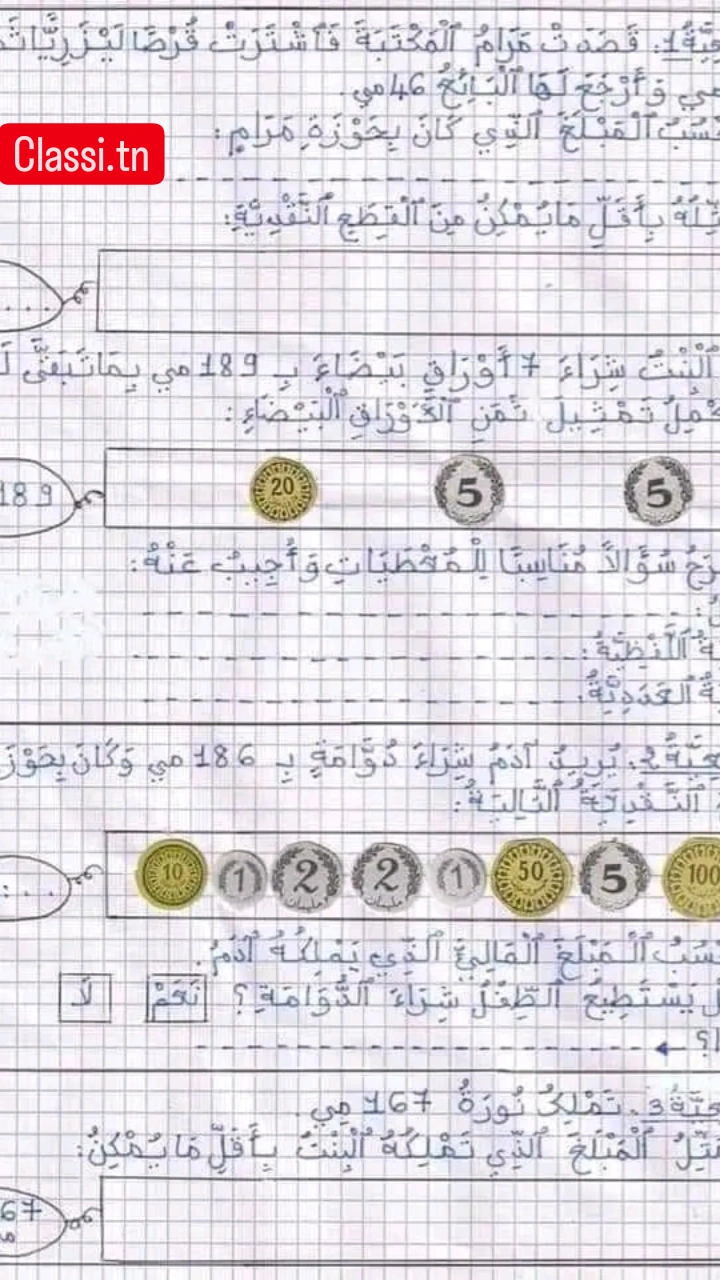 1: قَصَدَتْ مَرَامُ الْمَكْتَبَةَ فَاشْتَرَتْ قُرْصًا لَيْزَرِيًّا
مي وَأَرْجَعَ لَهَا الْبَائِعُ 46 مي.
الْمَبْلَغَ الَّذِي كَانَ بِحَوْزَةِ مَرَامٍ:
Classi.tn
بِأَقَلِّ مَا يُمْكِنُ مِنَ الْقِطَعِ النَّقْدِيَّةِ:
...
الْبِنْتُ شِرَاءَ 7 أَوْرَاقٍ بَيْضَاءَ بِـ 189 مي بِمَا تَبَقَّى
تَمْثِيلَ ثَمَنِ الْأَوْرَاقِ الْبَيْضَاءِ:
189 20 5 5
سُؤَالًا مُنَاسِبًا لِلْمُعْطَيَاتِ وَأُجِيبُ عَنْهُ:
اللَّفْظِيَّةُ:
الْعَدَدِيَّةُ:
2: يُرِيدُ آدَمُ شِرَاءَ دُوَّامَةٍ بِـ 186 مي وَكَانَ
النَّقْدِيَّةُ التَّالِيَةُ:
... 10 1 2 2 1 50 5 100
الْمَبْلَغَ الْمَالِيَّ الَّذِي يَمْلِكُهُ آدَمُ.
يَسْتَطِيعُ الطِّفْلُ شِرَاءَ الدُّوَّامَةِ؟ نَعَمْ لَا
3. تَمْلِكُ نُورَةُ 167 مي.
الْمَبْلَغَ الَّذِي تَمْلِكُهُ الْبِنْتُ بِأَقَلِّ مَا يُمْكِنُ:
67